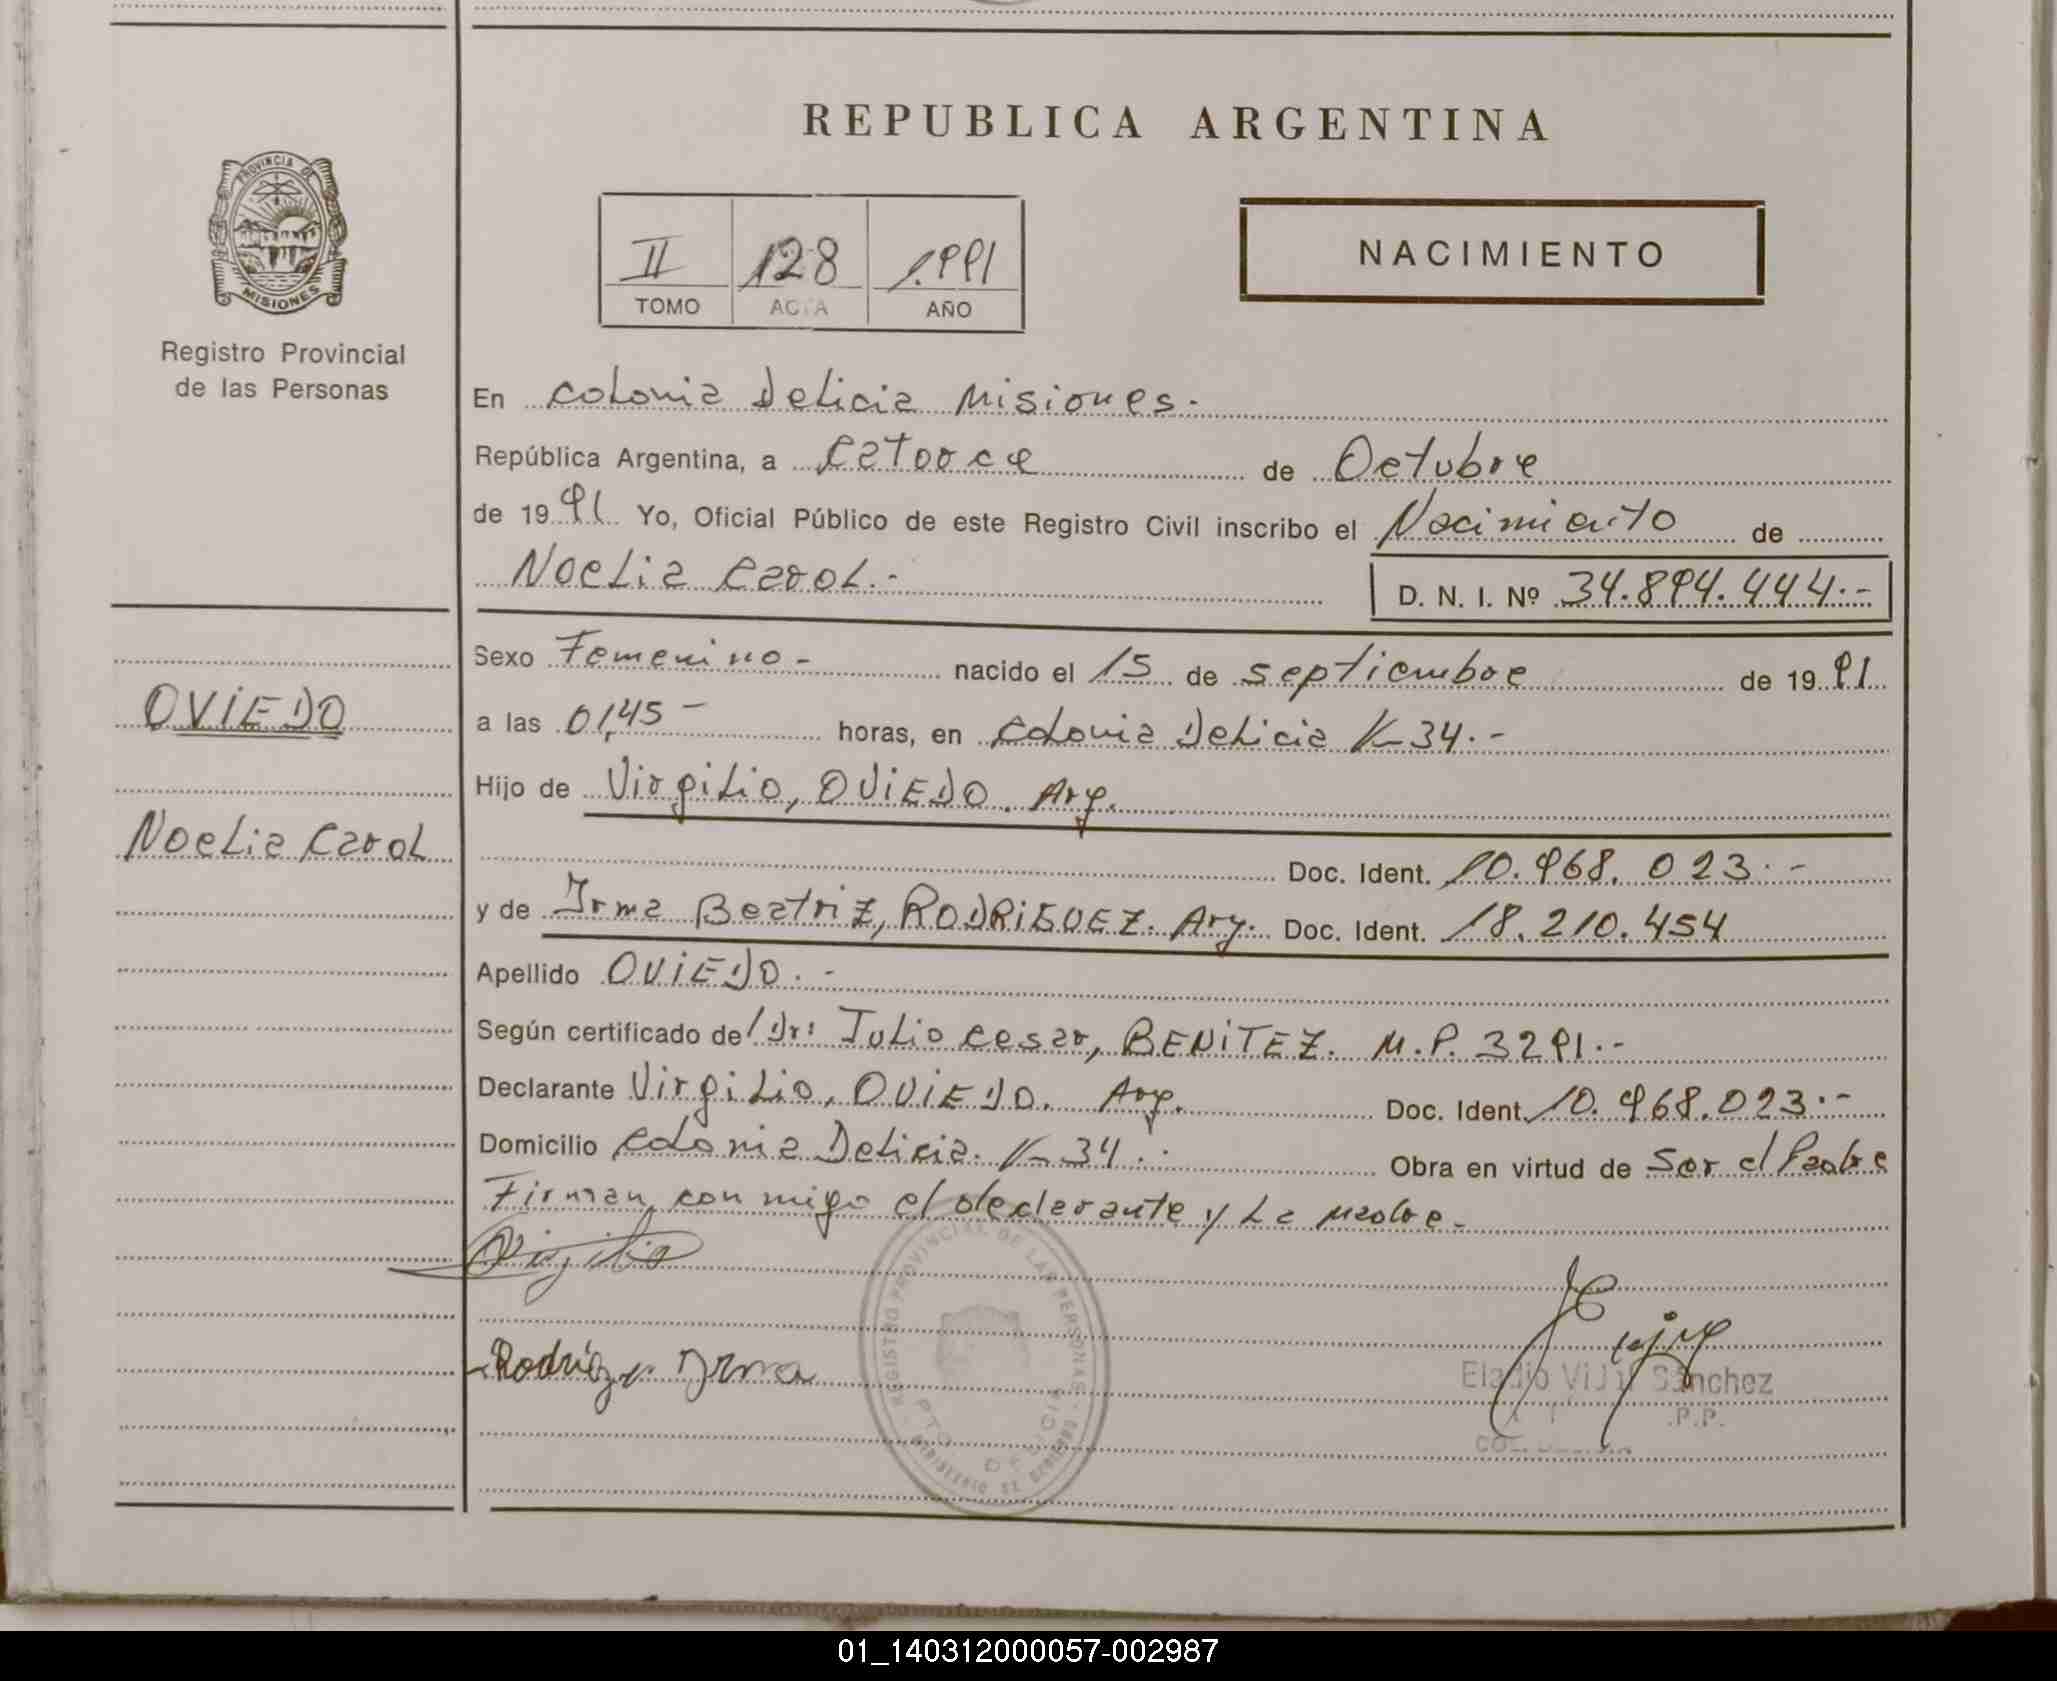 REPUBLICA ARGENTINA
PROVINCIA DE
MISIONES
Registro Provincial
de las Personas
II 128 1.991
TOMO ACTA AÑO
NACIMIENTO
En Colonia Delicia Misiones.
República Argentina, a Catorce de Octubre
de 1991 Yo, Oficial Público de este Registro Civil inscribo el Nacimiento de
Noelia Carol.-
D. N. I. Nº 34.894.444.-
OVIEDO
Noelia Carol
Sexo Femenino- nacido el 15 de septiembre de 1991
a las 01,45- horas, en Colonia Delicia K-34.-
Hijo de Virgilio, OVIEDO. Arg.
Doc. Ident. 10.968.023.-
y de Irma Beatriz, RODRIGUEZ. Arg. Doc. Ident. 18.210.454
Apellido OVIEDO.-
Según certificado de/ Dr: Julio Cesar, BENITEZ. M.P. 3291.-
Declarante Virgilio, OVIEDO. Arg. Doc. Ident. 10.968.023.-
Domicilio Colonia Delicia. K-34.. Obra en virtud de Ser el Padre
Firman con migo el declarante y La Madre.
Virgilio
Rodriguez Irma
REGISTRO PROVINCIAL DE LAS PERSONAS
PTO DELICIA
MINISTERIO DE GOBIERNO
Eladio Sanchez
.P.P.
01_140312000057-002987